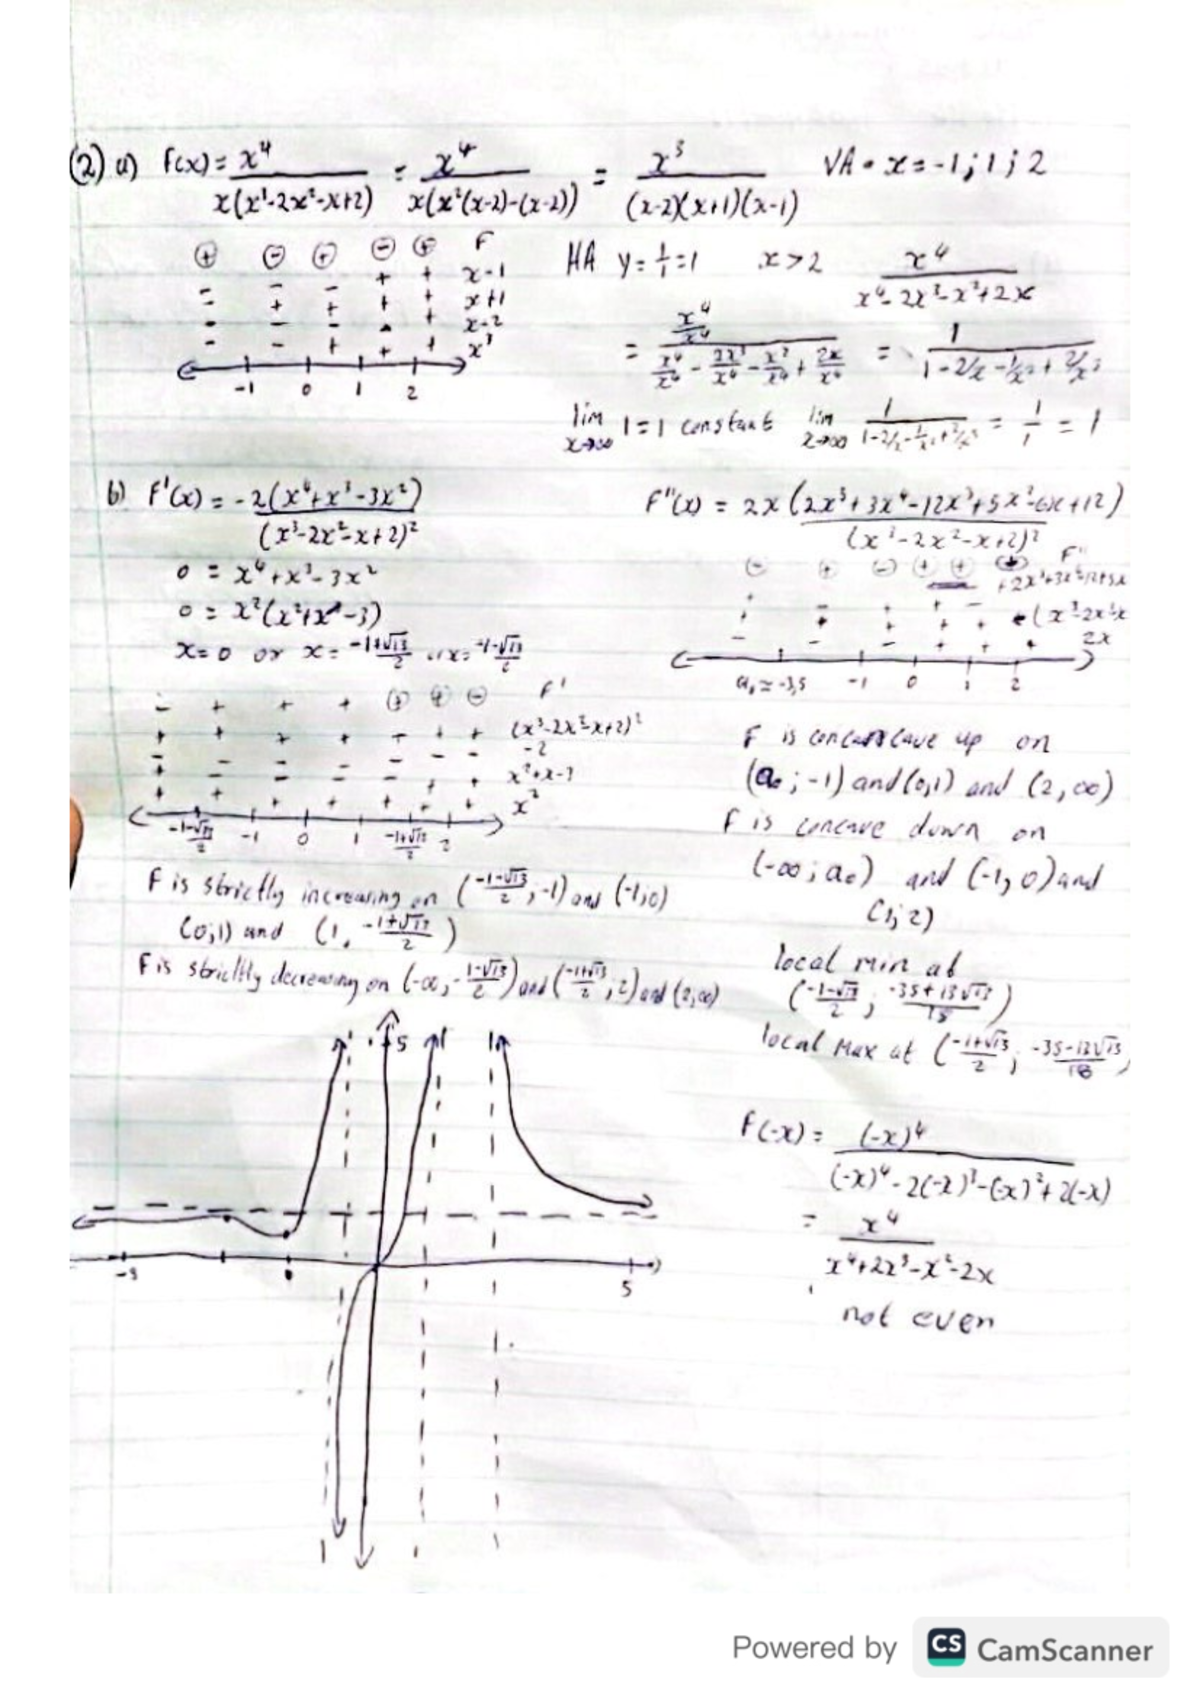 (2) a) F(x) = x⁴ / x(x³-2x²-x+2) = x⁴ / x(x²(x-2)-(x-2)) = x³ / (x-2)(x+1)(x-1) VA = x = -1; 1; 2
⊕ ⊖ ⊕ ⊖ ⊕ F
- - - + + x-1
- + + + + x+1
- - - - + x-2
- - + + + x³
-1 0 1 2
HA y = 1/1 = 1 x>2 x⁴ / x⁴-2x³-x²+2x
= x⁴/x⁴ / x⁴/x⁴ - 2x³/x⁴ - x²/x⁴ + 2x/x⁴ = 1 / 1-2/x-1/x²+2/x³
lim x→∞ 1 = 1 constant lim x→∞ 1 / 1-2/x-1/x²+2/x³ = 1/1 = 1
b) F'(x) = -2(x⁴+x³-3x²) / (x³-2x²-x+2)²
0 = x⁴+x³-3x²
0 = x²(x²+x-3)
x=0 or x = -1+√13/2 or x = -1-√13/2
- + + + ⊕ ⊕ ⊖ F'
(x³-2x²-x+2)²
-2
x²+x-3
x²
-1-√13/2 -1 0 1 -1+√13/2 2
F is strictly increasing on (-1-√13/2; -1) and (-1;0)
(0;1) and (1, -1+√13/2)
F is strictly decreasing on (-∞, -1-√13/2) and (-1+√13/2; 2) and (2,∞)
F''(x) = 2x(2x⁵+3x⁴-12x³+5x²-6x+12) / (x³-2x²-x+2)²
F''
2x
a₀ ≈ -3,5 -1 0 1 2
F is concave up on
(a₀; -1) and (0,1) and (2,∞)
F is concave down on
(-∞; a₀) and (-1, 0) and
(1; 2)
local min at
(-1-√13/2; -35+13√13/18)
local Max at (-1+√13/2; -35-13√13/18)
F(-x) = (-x)⁴ / (-x)⁴-2(-x)³-(-x)²+2(-x)
= x⁴ / x⁴+2x³-x²-2x
not even
5
5
Powered by CS CamScanner